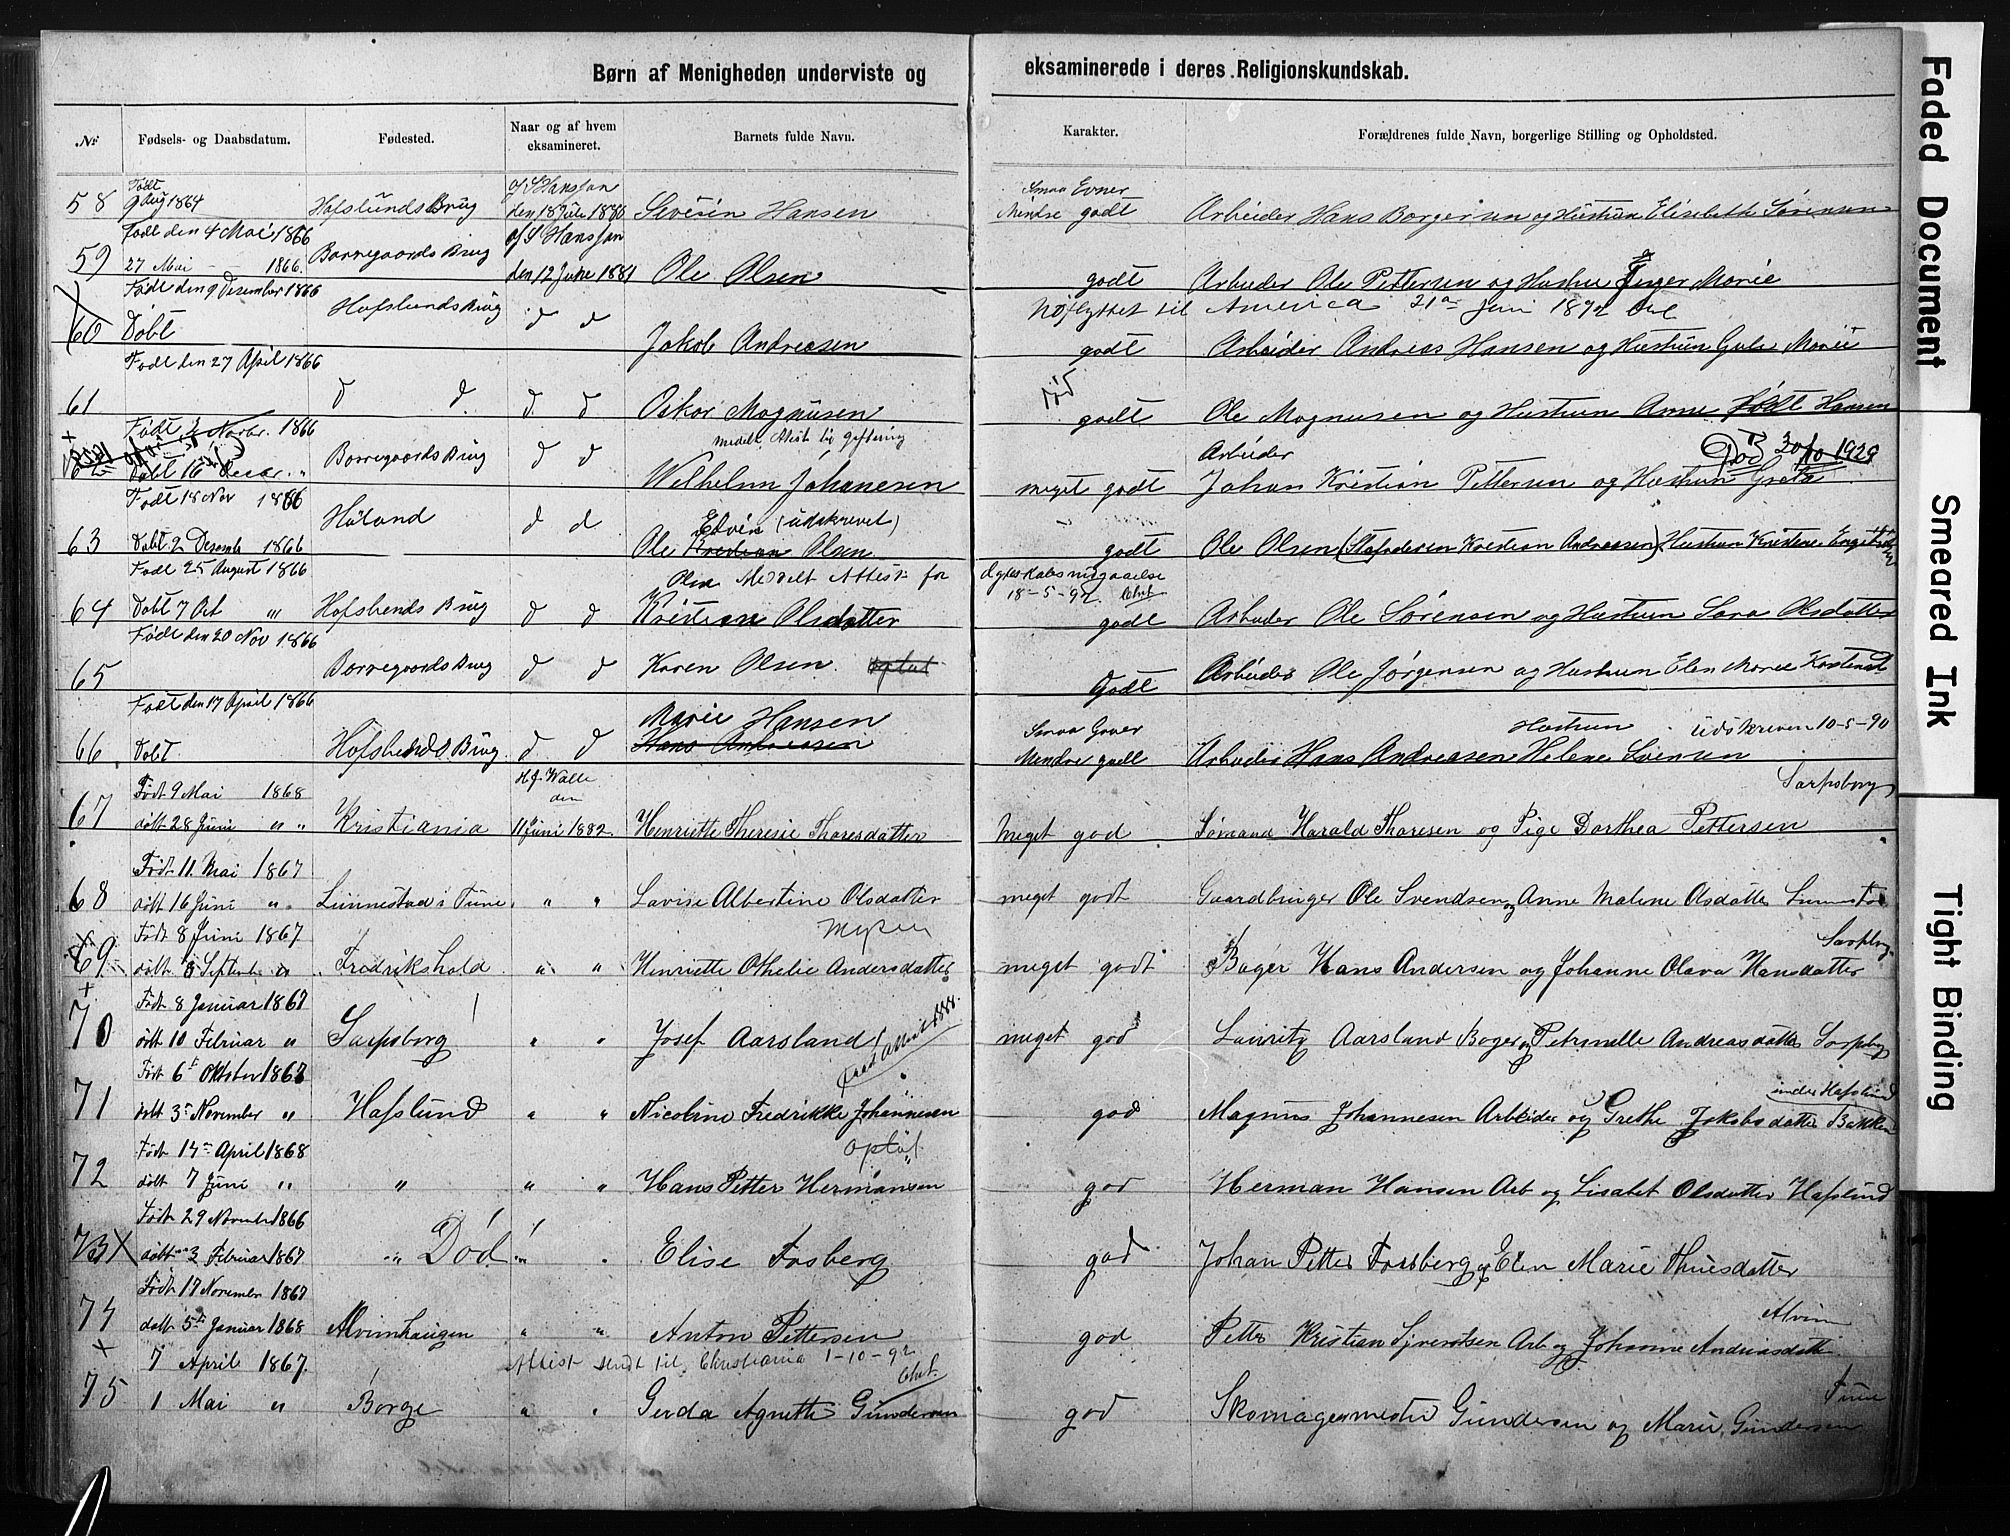 Børn af Menigheden underviste og eksaminerede i deres Religionskundskab.
№ Fødsels- og Daabsdatum. Fødested. Naar og af hvem eksamineret. Barnets fulde Navn. Karakter. Forældrenes fulde Navn, borgerlige Stilling og Opholdsted.
Født af S Hanssen Smaa Evner
58 9 Aug 1864 Hafslunds Brug den 18 Hansen Mindre godt Arbeider Hans Borgersen og Hustrun Elisebeth Sørensen
Født den 4 Mai 1866 af S Hanssen
59 27 Mai 1866. Borregaards Brug den 12 June 1881 Ole Olsen godt Arbeider Ole Pettersen og Hustru Inger Marie
Født den 9 Desember 1866 til America 21 Juni 1892
60 Døbt Hafslunds Brug d d Jakob Andreasen godt Arbeider Andreas Hansen og Hustrun Marie
Født den 27 April 1866
61 d d d d Oskar Magnusen godt Ole Magnusen og Hustrun Anne født Hansen
Født 2 Novbr. 1866 Arbeider Død 30/10 1929
62 Døbt 16 Decbr. " Borregaards Brug d d Wilhelm Johanesen meget godt Johan Kristian Pettersen og Hustrun Greta
Født 18 Nov 1866 Edvin (udskrevet)
63 Døbt 2 Desemb 1866 Høland d d Ole Kristian Olsen godt Ole Olsen (Stafaderen Kristian Andreasen) Hustrun Kristine
Født 25 August 1866 Olsen Meddelt Attest for 18-5-92
64 Døbt 7 Oct " Hafslunds Brug d d Olsdatter godt Arbeider Ole Sørensen og Hustrun Sara Olsdatter
Født den 20 Nov 1866
65 Borregaards Brug d d Karen Olsen Godt Arbeider Ole Jørgensen og Hustrun Elen Marie
Født den 17 April 1866 Marie Hansen Smaa Gaver Hustrun udskreven 10-5-90
66 Døbt Hafslunds Brug d d Hans Andreasen Mindre godt Arbeider Hans Andreasen Helene Svensen
Født 9 Mai 1868 H.J. Walle den Sarpsborg
67 døbt 28 Juni " " Kristiania 11 Juni 1882 Henriette Theresie Thoresdatter Meget god Sømand Harald Thoresen og Pige Dorthea Pettersen
Født 11. Mai 1867
68 døbt 16 Juni " " Lunnestad i Tune " " Lovise Albertine Olsdatter meget godt Gaardbruger Ole Svendsen og Anne Malene Olsdatter
Født 8 Juni 1867 Mysen Sarpsborg
69 døbt 8 Septemb " Fredrikshald " " Henriette Othelie Andersdatter meget godt Bager Hans Andersen og Johanne Olava Hansdatter
Født 8 Januar 1867
70 døbt 10 Februar " Sarpsborg " " Josef Aarsland meget god Lauritz Aarsland Bager og Petrnelle Andreasdatter Sarpsborg
Født 6 Oktober 1867 under Hafslund
71 døbt 3 November " Hafslund " " Nicoline Fredrikke Johannesen god Magnus Johannesen Arbeider og Grethe Jakobsdatter Bakken
Født 14 April 1868 optøt
72 døbt 7 Juni " " " " Hans Petter Hermansen god Herman Hansen Arb og Lisabet Olsdatter Hafslund
Født 29 November 1866
73 døbt 3 Februar 1867 " Død " " Elise Fosberg god Johan Petter Forsberg og Elen Marie Thuesdatter
Født 17 November 1867 Alvim
74 døbt 5 Januar 1868 Alvimhaugen " " Anton Pettersen god Petter Kristian Arb og Johanne Andreasdatter
7 April 1867. Attest sendt til Christiania 1-10-92 Tune
75 1 Mai " Borge " " Gerda Agnette Gundersen god Skomagermester Gundersen og Marie Gundersen
Faded Document
Smeared Ink
Tight Binding